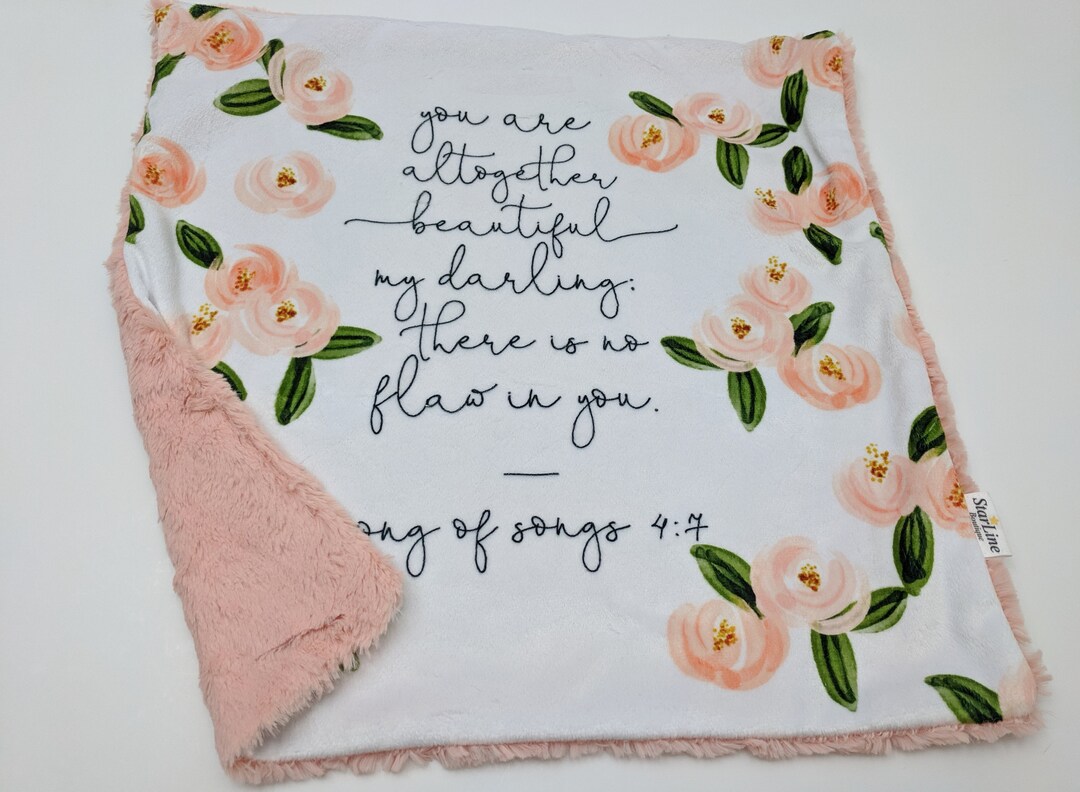 you are
altogether
beautiful
my darling:
there is no
flaw in you.
ong of songs 4:7
StarLine
Boutique